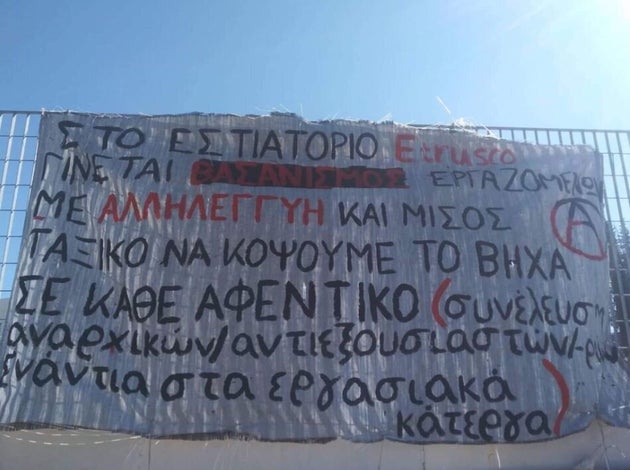 ΣΤΟ ΕΣΤΙΑΤΟΡΙΟ Etrusco
ΓΙΝΕΤΑΙ ΒΑΣΑΝΙΣΜΟΣ ΕΡΓΑΖΟΜΕΝΩΝ
ΜΕ ΑΛΛΗΛΕΓΓΥΗ ΚΑΙ ΜΙΣΟΣ
ΤΑΞΙΚΟ ΝΑ ΚΟΨΟΥΜΕ ΤΟ ΒΗΧΑ
ΣΕ ΚΑΘΕ ΑΦΕΝΤΙΚΟ (συνέλευση
αναρχικών/αντιεξουσιαστών/-ριών
ενάντια στα εργασιακά
κάτεργα)